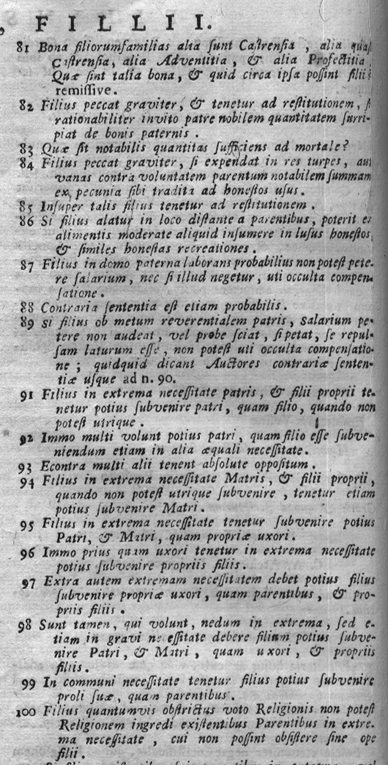 , FILLII.
81 Bona filiorumfamilias alia sunt Castrensia, alia quasi
Castrensia, alia Adventitia, & alia Profectitia
Quæ sint talia bona, & quid circa ipsa possint filii?
remissive.
82 Filius peccat graviter, & tenetur ad restitutionem, si
rationabiliter invito patre nobilem quantitatem surri-
piat de bonis paternis.
83 Quæ sit notabilis quantitas sufficiens ad mortale?
84 Filius peccat graviter, si expendat in res turpes, aut
vanas contra voluntatem parentum notabilem summam
ex pecunia sibi tradita ad honestos usus.
85 Insuper talis filius tenetur ad restitutionem.
86 Si filius alatur in loco distante a parentibus, poterit ex
alimentis moderate aliquid insumere in lusus honestos,
& similes honestas recreationes.
87 Filius in domo paterna laborans probabilius non potest pete-
re salarium, nec si illud negetur, uti occulta compen-
satione.
88 Contraria sententia est etiam probabilis.
89 Si filius ob metum reverentialem patris, salarium pe-
tere non audeat, vel probe sciat, si petat, se repul-
sam laturum esse, non potest uti occulta compensatio-
ne; quidquid dicant Auctores contrariæ senten-
tiæ usque ad n. 90.
91 Filius in extrema necessitate patris, & filii proprii te-
netur potius subvenire patri, quam filio, quando non
potest utrique.
92 Immo multi volunt potius patri, quam filio esse subve-
niendum etiam in alia æquali necessitate.
93 Econtra multi alii tenent absolute oppositum.
94 Filius in extrema necessitate Matris, & filii proprii,
quando non potest utrique subvenire, tenetur etiam
potius subvenire Matri.
95 Filius in extrema necessitate tenetur subvenire potius
Patri, & Matri, quam propriæ uxori.
96 Immo prius quam uxori tenetur in extrema necessitate
potius subvenire propriis filiis.
97 Extra autem extremam necessitatem debet potius filius
subvenire propriæ uxori, quam parentibus, & pro-
priis filiis.
98 Sunt tamen, qui volunt, nedum in extrema, sed e-
tiam in gravi necessitate debere filium potius subve-
nire Patri, & Matri, quam uxori, & propriis
filiis.
99 In communi necessitate tenetur filius potius subvenire
proli suæ, quam parentibus.
100 Filius quantumvis obstrictus voto Religionis non potest
Religionem ingredi existentibus Parentibus in extre-
ma necessitate, cui non possint obsistere sine ope
filii.